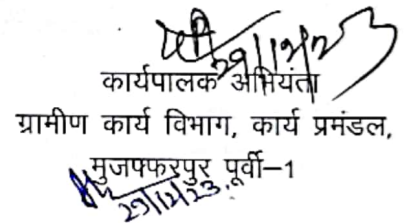 29/12/23
कार्यपालक अभियंता
ग्रामीण कार्य विभाग, कार्य प्रमंडल,
मुजफ्फरपुर पूर्वी–1
29/12/23